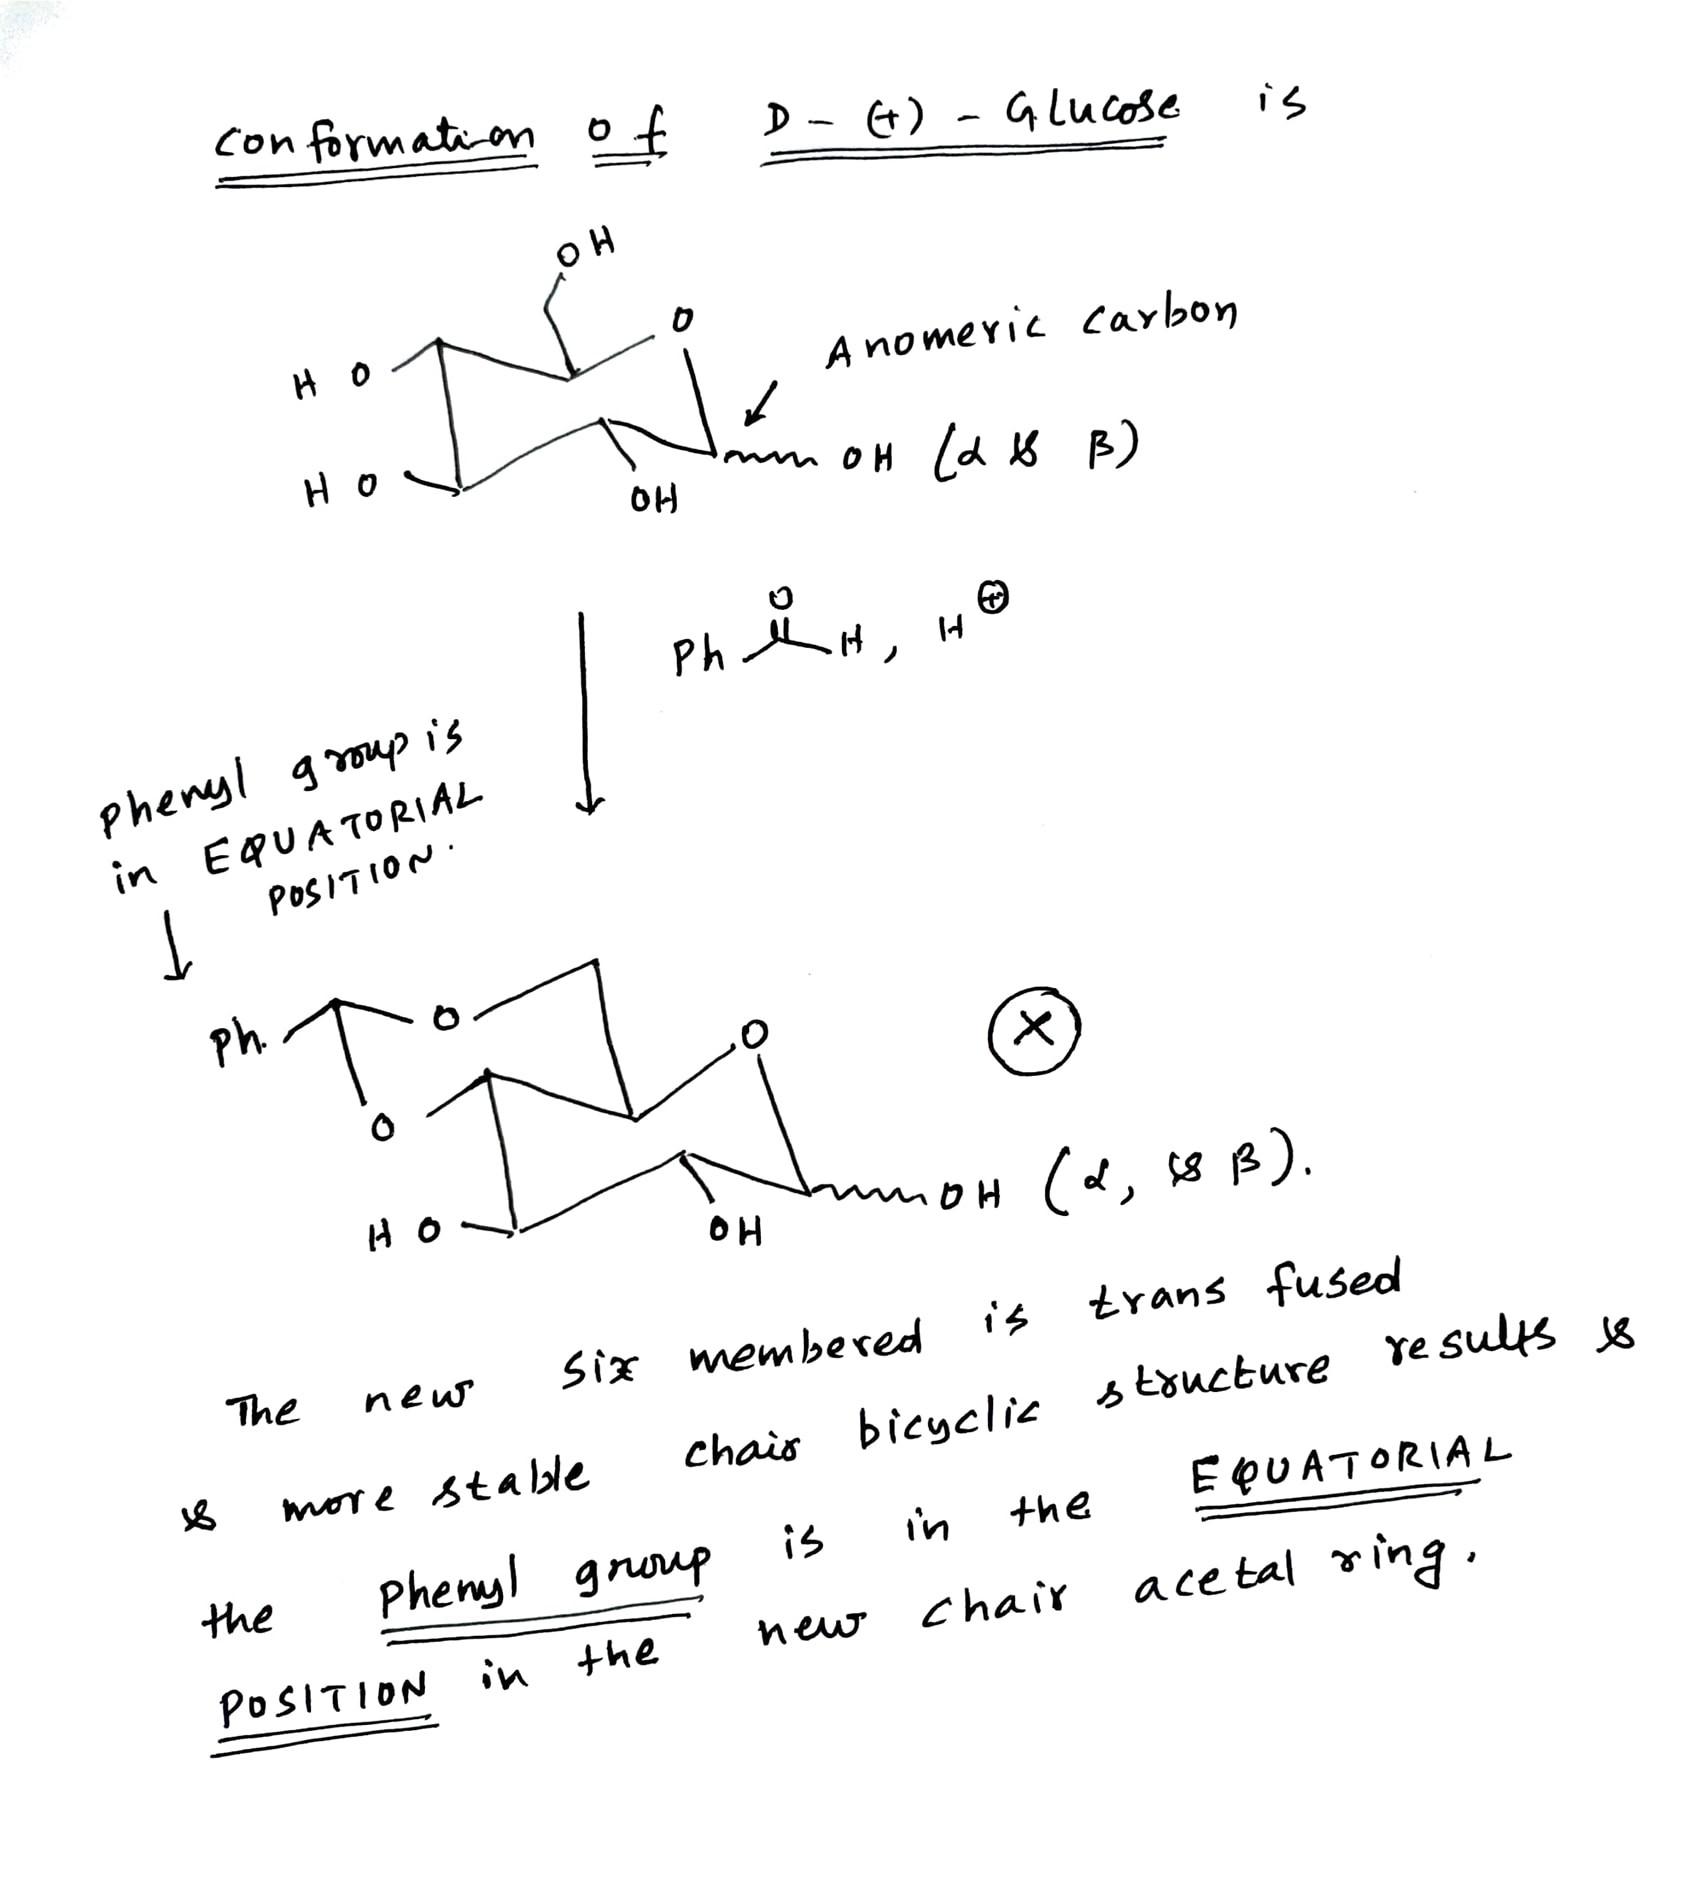 conformation of D - (+) - Glucose is
OH
O
Anomeric carbon
H O
OH (α & β)
H O
OH
O
Ph H, H⊕
phenyl group is
in EQUATORIAL
POSITION.
Ph. O
O
X
O
OH (α, & β).
H O
OH
The new six membered is trans fused
& more stable chair bicyclic structure results &
the Phenyl group is in the EQUATORIAL
POSITION in the new chair acetal ring.